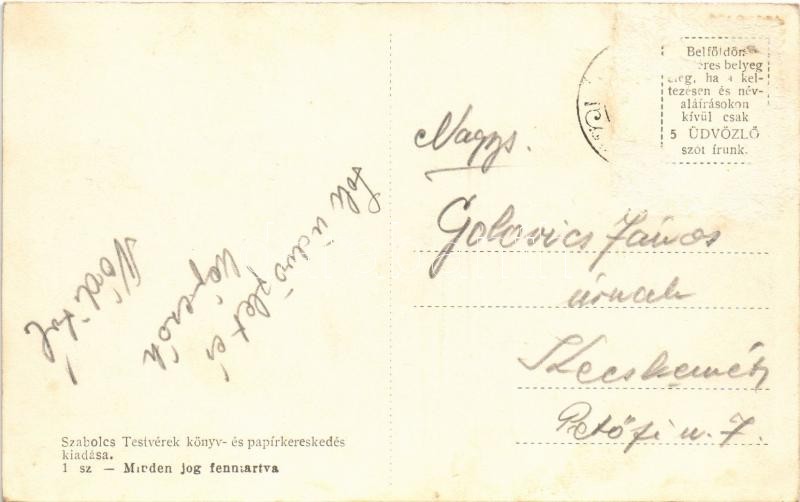 Sok üdvözletet és
Nádi tól
Szabolcs Testvérek könyv- és papírkereskedés
kiadása.
1 sz — Minden jog fenntartva
Belföldön
eres belyeg
eleg, ha a kel-
tezésen és név-
aláírásokon
kívül csak
5 ÜDVÖZLŐ
szót írunk.
Nagys.
Golovics János
úrnak
Kecskemét
Petőfi u. 7.